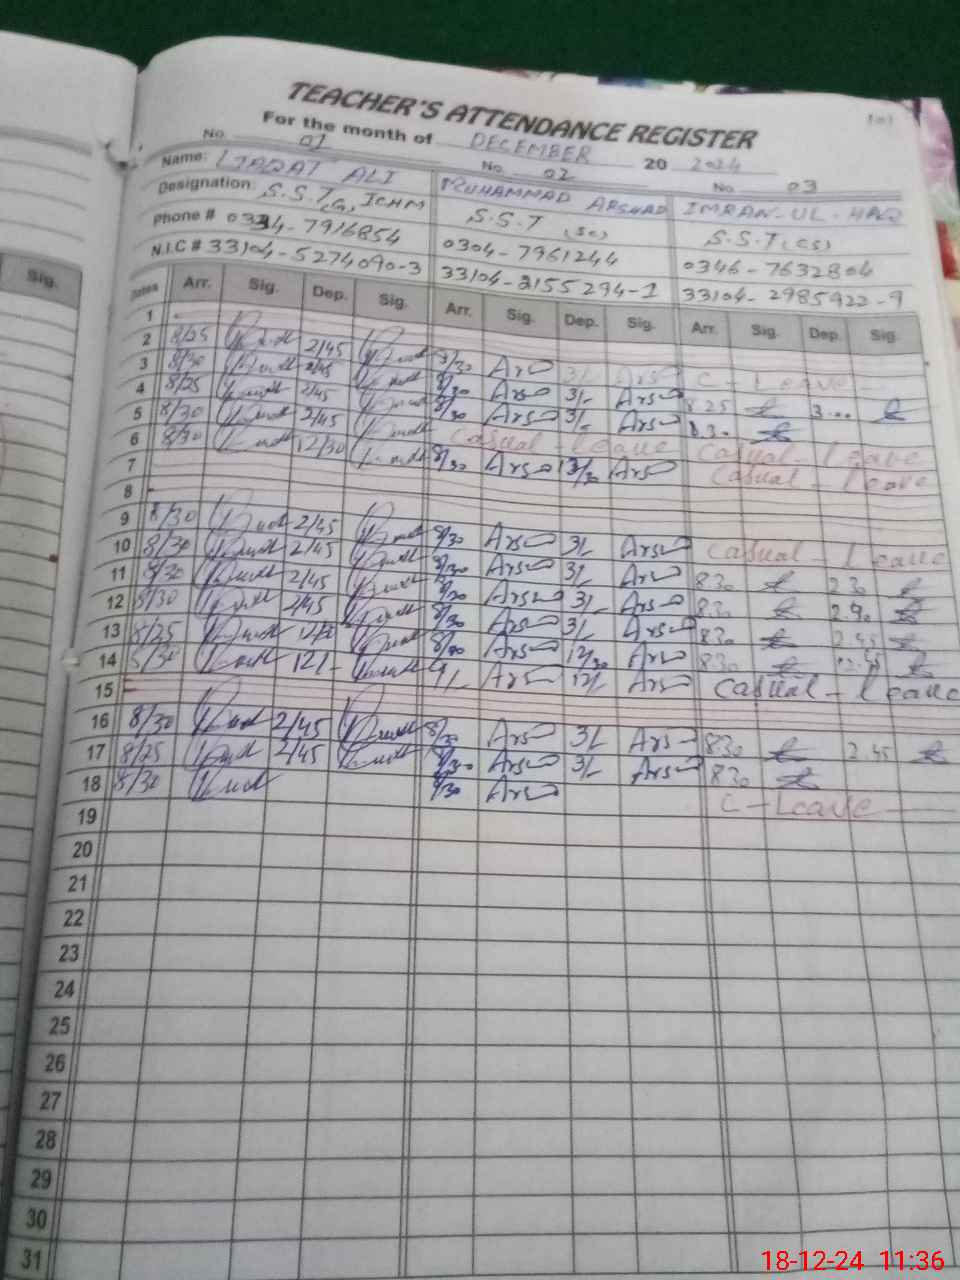 101
TEACHER'S ATTENDANCE REGISTER
For the month of DECEMBER 20 2024
No. 01 No. 02 No. 03
Name: LIAQAT ALI MUHAMMAD ARSHAD IMRAN-UL-HAQ
Designation: S.S.T, ICHM S.S.T (SC) S.S.T (CS)
Phone # 0334-7916854 0304-7961244 0346-7632804
N.I.C # 33104-5274090-3 33104-2155294-1 33104-2985922-9
Sig.
Dates Arr. Sig. Dep. Sig. Arr. Sig. Dep. Sig. Arr. Sig. Dep. Sig.
1
2 8/25 2/45 8/30 Ars 3/- Ars C-Leave
3 8/30 2/45 8/30 Ars 3/- Ars 8 25 3...
4 8/25 2/45 8/30 Ars 3/- Ars 8 30
5 8/30 2/45 Casual - Leave Casual - Leave
6 8/30 12/30 8/30 Ars 12/30 Ars Casual - Leave
7
8
9 8/30 2/45 8/30 Ars 3/- Ars Casual - Leave
10 8/30 2/45 8/30 Ars 3/- Ars 8 30 2 30
11 8/30 2/45 8/30 Ars 3/- Ars 8 30
12 8/30 2/45 8/30 Ars 3/- Ars 8 30 2 45
13 8/25 8/30 Ars 12/30 Ars 8 30
14 8/30 12/- 9/- Ars 12/- Ars Casual - Leave
15
16 8/30 2/45 8/30 Ars 3/- Ars 8 30 2 45
17 8/25 2/45 8/30 Ars 3/- Ars 8 30
18 8/30 8/30 Ars C-Leave
19
20
21
22
23
24
25
26
27
28
29
30
31
18-12-24 11:36